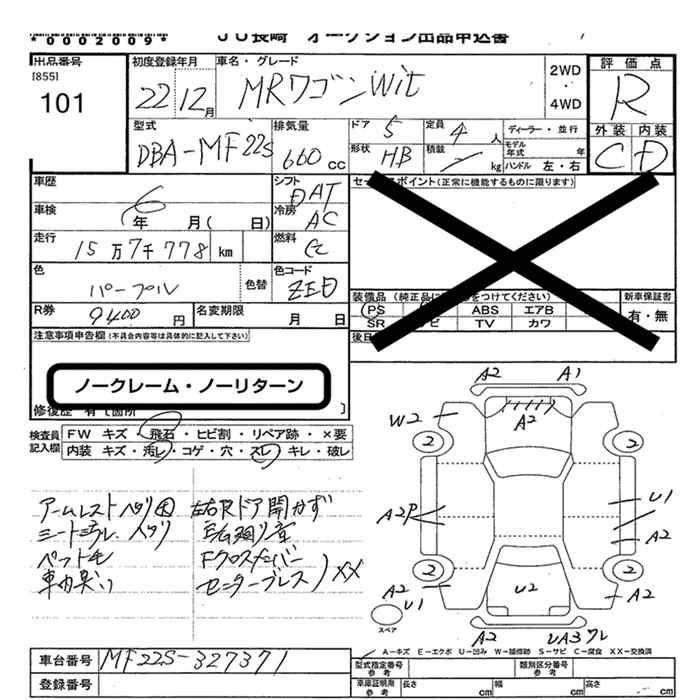 *0002009*
JU長崎 オークション出品申込書
出品番号
[855]
101
初度登録年月
22 12月
車名・グレード
MRワゴンWit
2WD
・
4WD
評価点
R
外装 内装
C D
型式
DBA-MF22S
排気量
660 CC
ドア 5
定員 4 人
形状 HB
積載 kg
ディーラー・並行
モデル年式 年
ハンドル 左・右
車歴
車検 6年 月( 日)
走行 15万7千778 km
シフト
DAT
冷房
AC
燃料
セールスポイント(正常に機能するものに限ります)
色
パープル
色替
色コード
ZED
R券
9400円
名変期限
月 日
装備品
PS ABS エアB
SR TV カワ
新車保証書
有・無
注意事項申告欄(不具合内容等は具体的に記入して下さい)
ノークレーム・ノーリターン
修復歴 有〔箇所 〕
検査員記入欄
FW キズ・飛石・ヒビ割・リペア跡・×要
内装 キズ・汚レ・コゲ・穴・スレ・キレ・破レ
左右Rドア開かず
XX
A2 A1
A2
W2
2 2
A2P
U1
A2
2 2
A2
U1
U2
A2
A2
スペア
A-キズ E-エクボ U-凹み W-補修跡 S-サビ C-腐食 XX-交換済
車台番号 MF22S-327371
登録番号
型式指定番号 参考
類別区分番号 参考
車庫証明用 参考
長さ cm
幅 cm
高さ cm